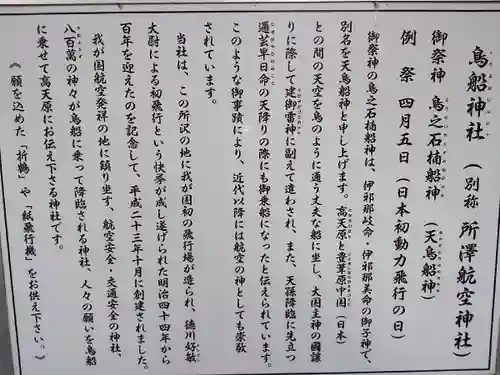 鳥船神社（別称 所澤航空神社）
御祭神 鳥之石楠船神（天鳥船神）
例祭 四月五日（日本初動力飛行の日）
御祭神の鳥之石楠船神は、伊邪那岐命・伊邪那美命の御子神で、
別名を天鳥船神と申し上げます。高天原と豊葦原中国（日本）
との間の天空を鳥のように通う丈夫な船に坐し、大国主神の國譲
りに際して建御雷神に副えて遣わされ、また、天孫降臨に先立つ
邇芸早日命の天降りの際にも御乗船になったと伝えられています。
このような御事蹟により、近代以降には航空の神としても崇敬
されています。
当社は、この所沢の地に我が国初の飛行場が造られ、徳川好敏
大尉による初飛行という快挙が成し遂げられた明治四十四年から
百年を迎えたのを記念して、平成二十三年十月に創建されました。
我が国航空発祥の地に鎮り坐す、航空安全・交通安全の神社、
八百萬の神々が鳥船に乗って降臨される神社、人々の願いを鳥船
に乗せて高天原にお伝え下さる神社です。
《 願を込めた「折鶴」や「紙飛行機」をお供え下さい。》